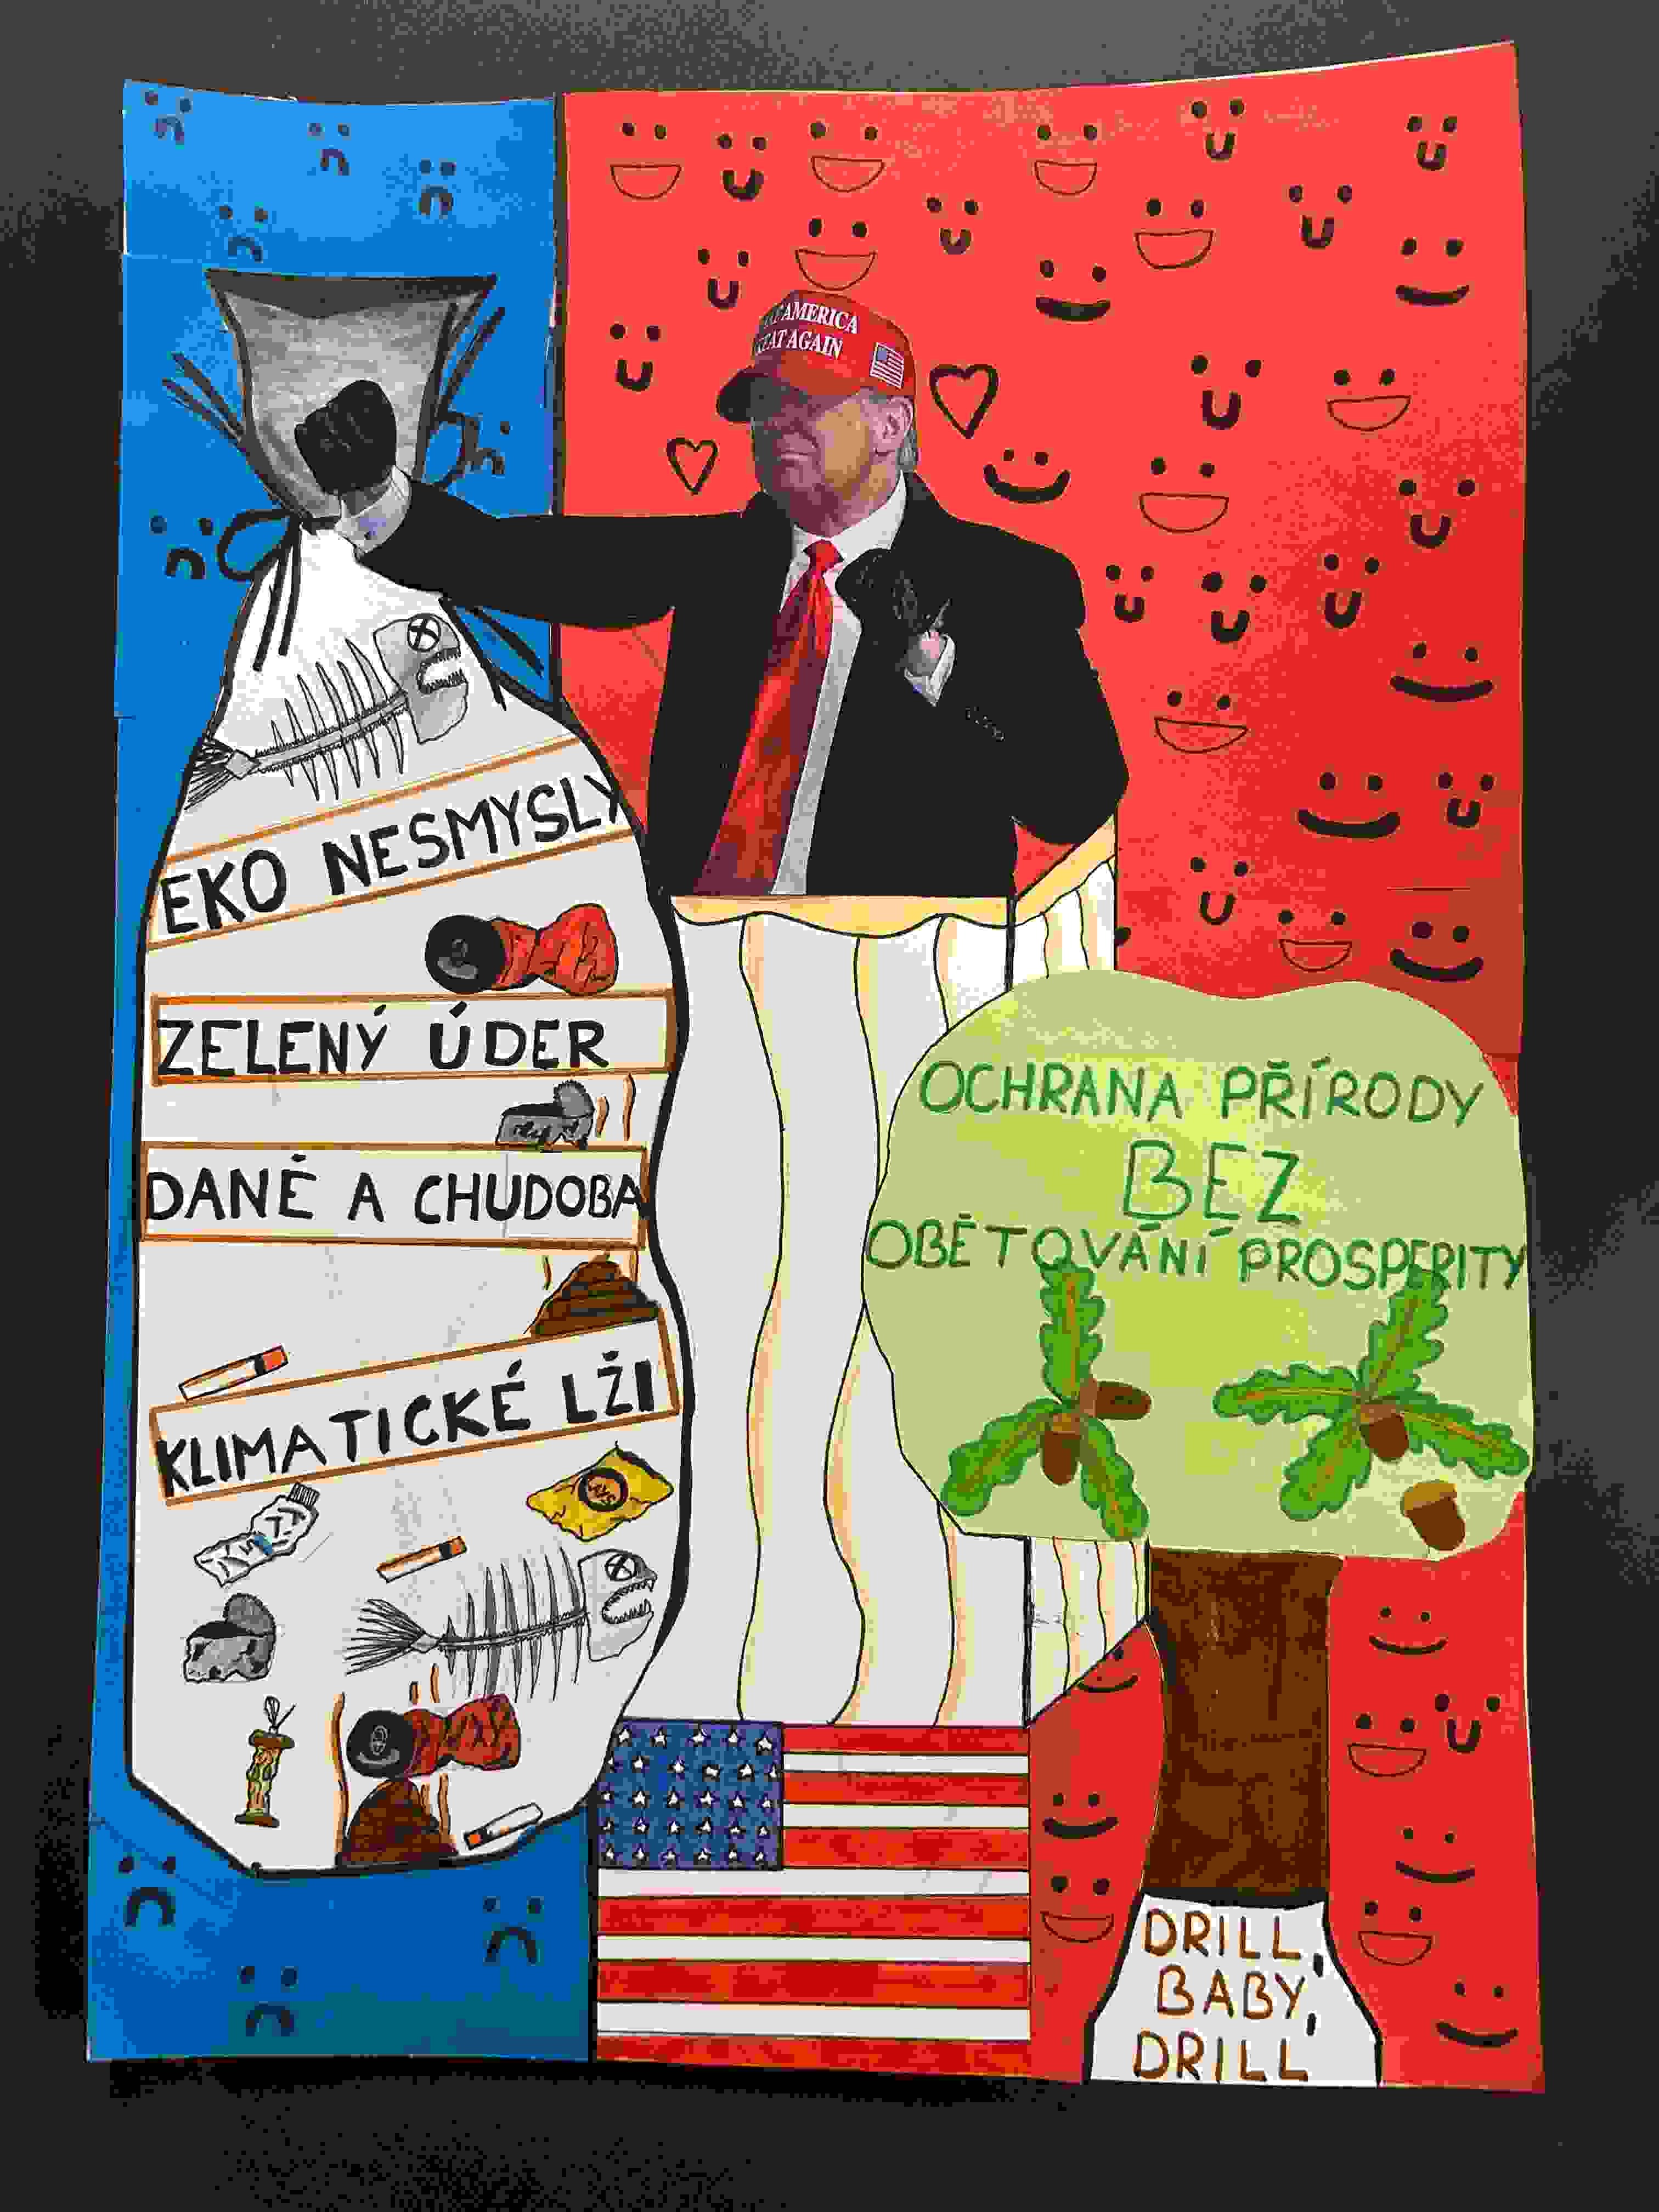 AMERICA
EAT AGAIN
EKO NESMYSLY
ZELENÝ ÚDER
DANĚ A CHUDOBA
KLIMATICKÉ LŽI
OCHRANA PŘÍRODY
BEZ
OBĚTOVÁNÍ PROSPERITY
DRILL,
BABY,
DRILL